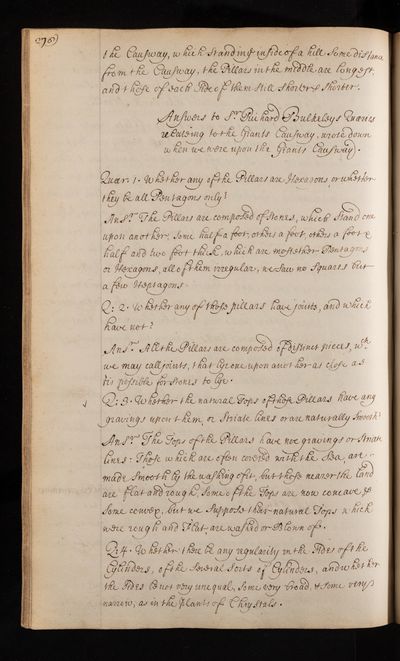 296)
the Causway, which standing inside of a hill some distance
from the Causway, the Pillars in the middle are longest,
and those of each side of them still shorter & shorter.
Answers to Sr. Richard Bulkeleys Quaries
relateing to the Giants Causway, wrote down
when we were upon the Giants Causway.
Quær: 1. Whether any of the Pillars are Hexagons, or whether
they be all Pentagons only?
Answr. The Pillars are composed of stones, which stand one
upon another: some half a foot, others a foot, others a foot &
half and two foot thick, which are most either Pentagons
or Hexagons, all of them irregular, we saw no squares but
a few Heptagons.
Q: 2. Whether any of those pillars have joints, and which
have not?
Answr. All the Pillars are composed of distinct pieces, wch.
we may call joints, that lye one upon another as close as
tis possible for stones to lye.
Q: 3. Whether the natural Tops of those Pillars have any
gravings upon them, or striate lines or are naturally smooth?
Answr. The Tops of the Pillars have noe gravings or striate
lines: Those which are often covered with the Sea, are
made smooth by the washing of it, but those nearer the land
are flat and rough, some of the Tops are now concave &
some convex, but we suppose their natural Tops which
were rough and flat, are washed or blown off.
Q: 4. Whether there be any regularity in the sides of the
Cylinders, of the several sorts of Cylinders, and whether
the sides be not very unequal, some very broad, & some very
narrow, as in the plants of Chrystals.